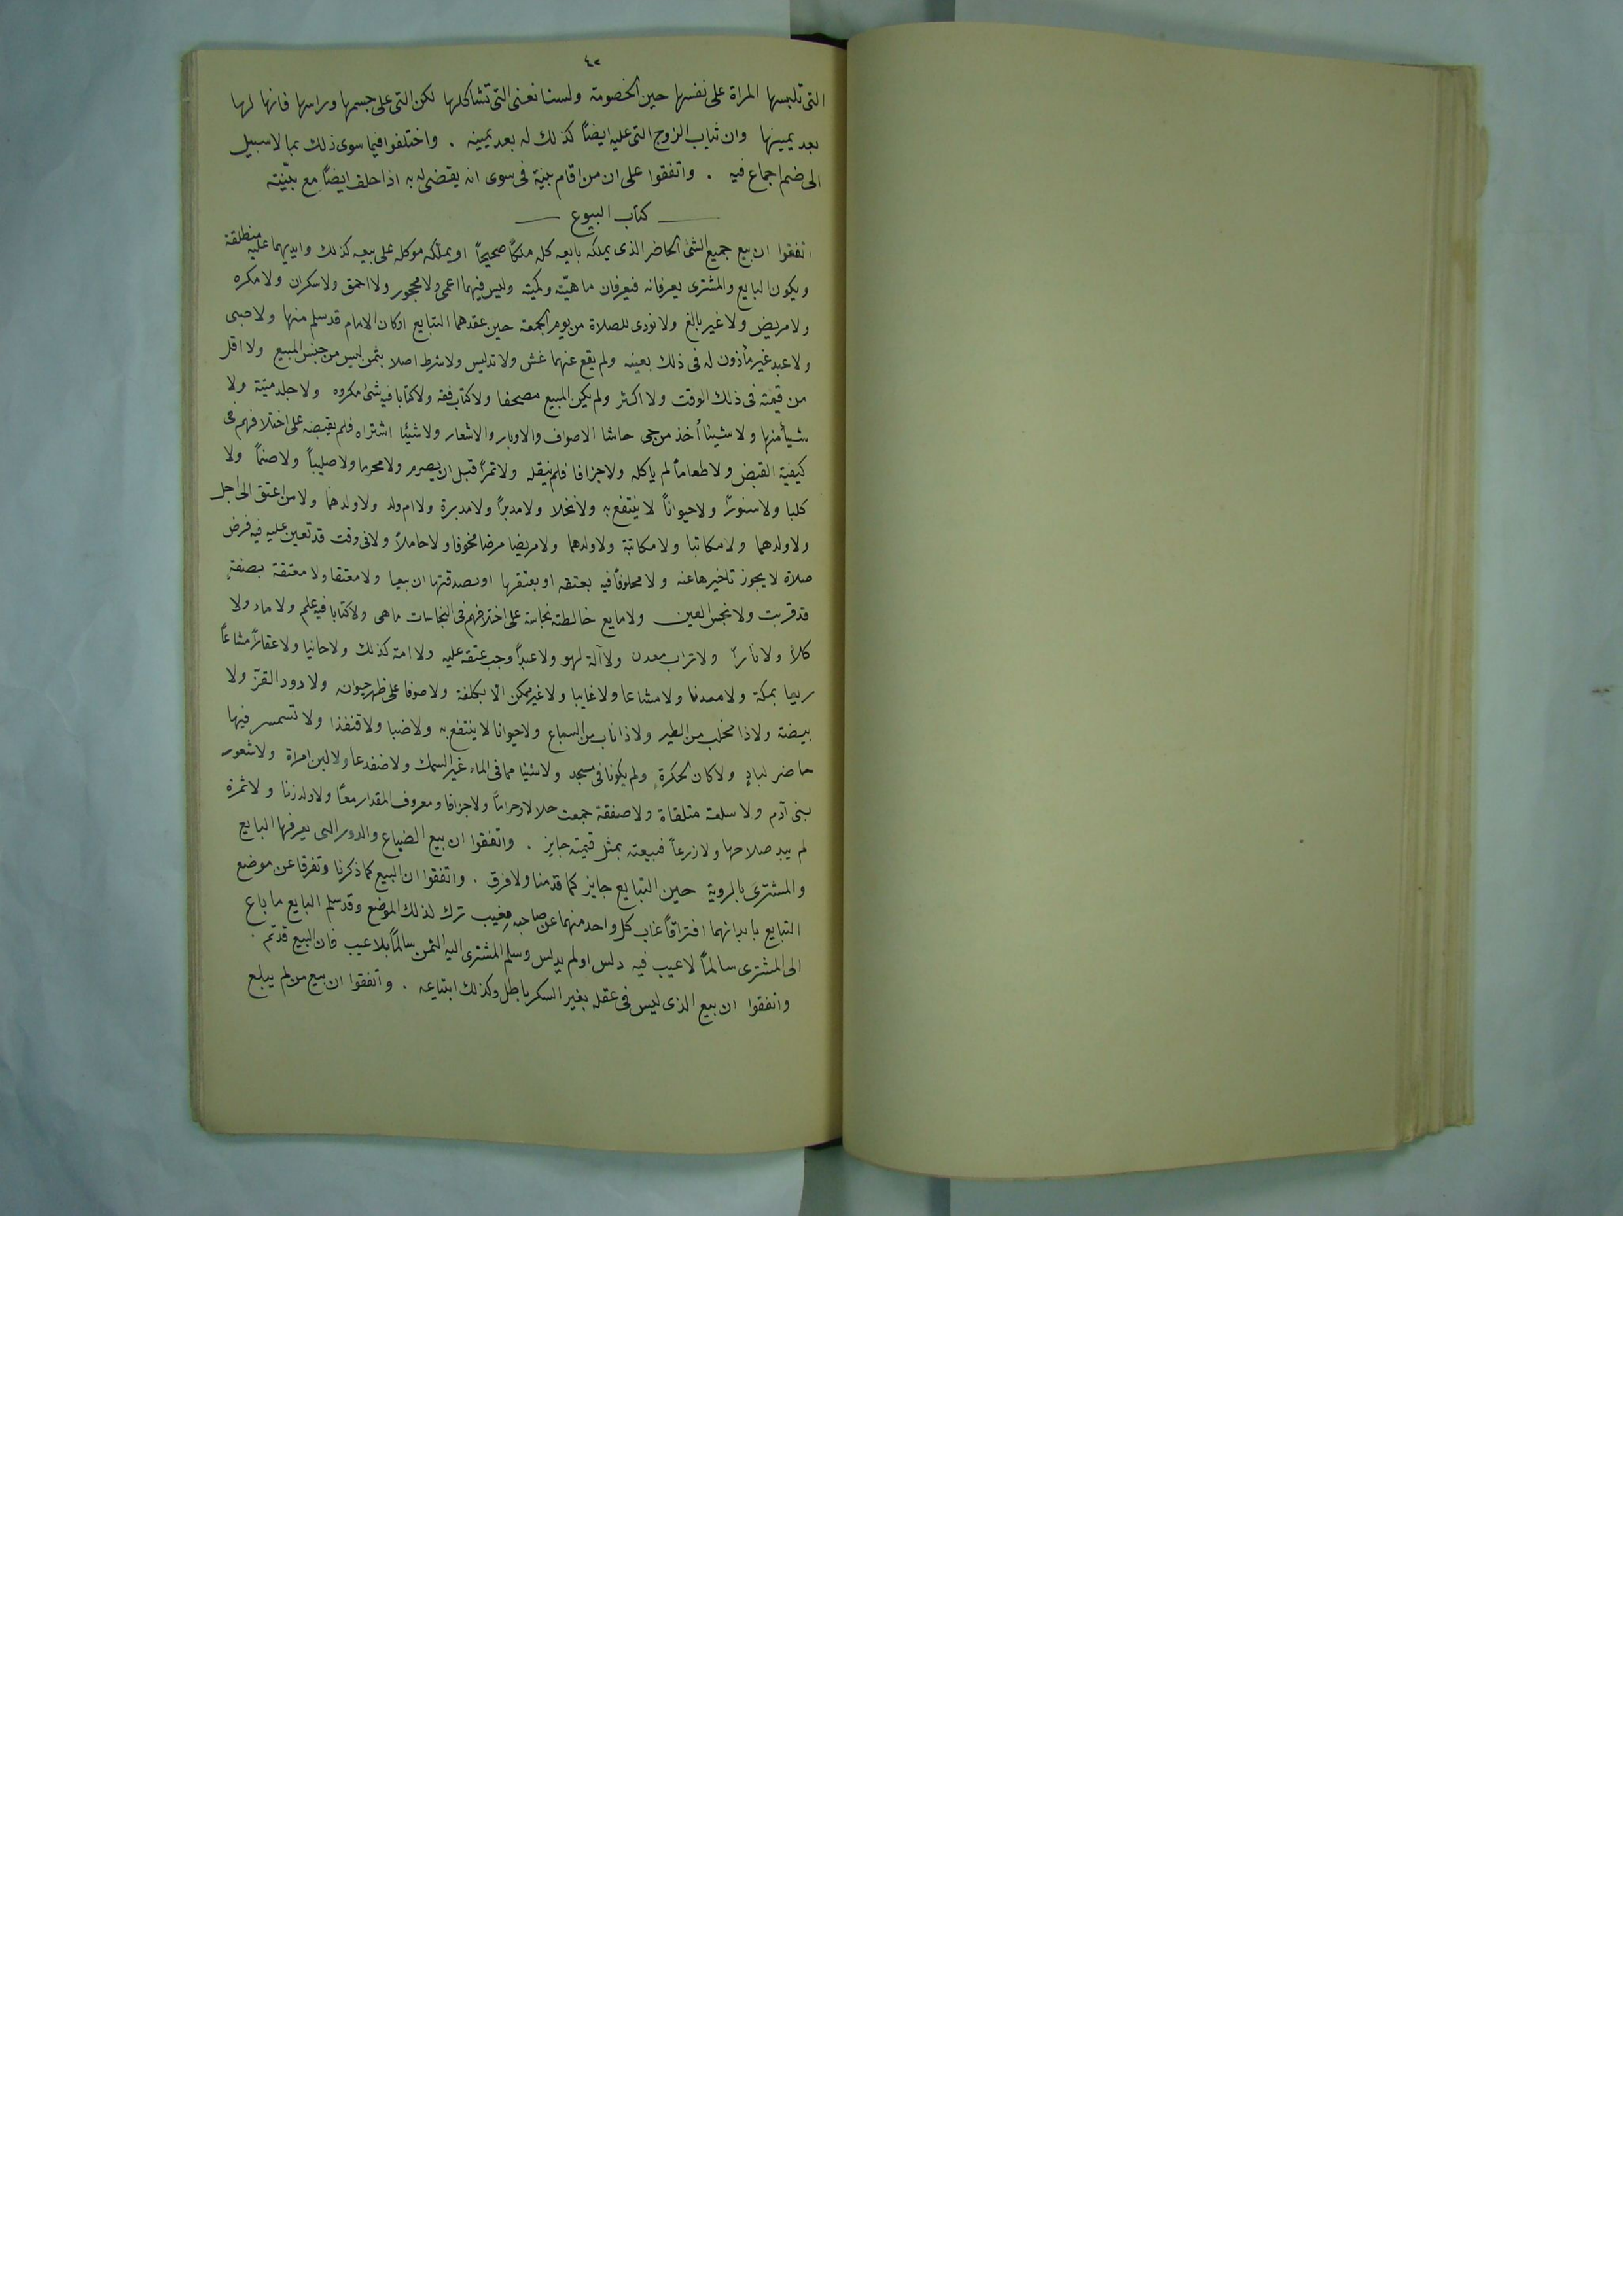 ٤٢
التى تلبسها المراة على نفسها حين الخصومة ولسنا نعنى التى تشاكلها لكن التى على جسمها وراسها فانها لها
بعد يمينها وان ثياب الزوج التى عليه ايضاً كذلك له بعد يمينه . واختلفوا فيما سوى ذلك بما لا سبيل
الى ضم اجماع فيه . واتفقوا على ان من اقام بينة فى سوى انه يقتضى له به اذا حلف ايضاً مع بيّنته
كتاب البيوع
اتفقوا ان بيع جميع الشئ الحاضر الذى يملكه بايعه كله ملكاً صحيحاً او يملكه موكله على بيعه كذلك وايديهما عليه منطلقة
ويكون البايع والمشترى يعرفانه فيعرفان ماهيّته وكميّته وليس فيهما اعمى ولا محجور ولا احمق ولا سكران ولا مكره
ولا مريض ولا غير بالغ ولا نودى للصلاة من يوم الجمعة حين عقدهما التبايع او كان الامام قد سلم منها ولا صبى
ولا عبد غير مأذون له فى ذلك بعينه ولم يقع عنهما غش ولا تدليس ولا شرط اصلا بثمن ليس من جنس المبيع ولا اقل
من قيمته فى ذلك الوقت ولا اكثر ولم يكن المبيع مصحفا ولا كتاب فقه ولا كتابا فيه شئ مكروه ولا جلد ميتة ولا
شيأ منها ولا شيئا أُخذ من حى حاشا الاصواف والاوبار والاشعار ولا شيئا اشتراه فلم يقبضه على اختلافهم فى
كيفية القبض ولا طعاماً لم يأكله ولا جزافا فلم ينقله ولا تمراً قبل ان يصرم ولا محرما ولا صليباً ولا صنماً ولا
كلبا ولا سنوراً ولا حيواناً لا ينتفع به ولا نخلا ولا مدبراً ولا مدبرة ولا ام ولد ولا ولدهما ولا من اعتق الى اجل
ولا ولدهما ولا مكاتبا ولا مكاتبة ولا ولدهما ولا مريضا مرضا مخوفا ولا حاملاً ولا فى وقت قد تعين عليه فيه فرض
صلاة لا يجوز تاخيرها عنه ولا محلوفاً فيه بعتقه او بعتقها او بصدقتها ان بيعا ولا معتقا ولا معتقة بصفةٍ
قد قربت ولا نجس العين ولا مايع خالطته نجاسة على اختلافهم فى النجاسات ما هى ولا كتابا فيه علم ولا ماء ولا
كلأ ولا ناراً ولا تراب معدن ولا آلة لهو ولا عبداً وجب عتقه عليه ولا امة كذلك ولا جانيا ولا عقاراً مشاعاً
بمكة ولا معدنا ولا مشاعا ولا غايبا ولا غير ممكن الا بكلفة ولا صوفا على ظهر حيوان ولا دود القزّ ولا
بيضه ولا ذا مخلب من الطير ولا ذا ناب من السباع ولا حيوانا لا ينتفع به ولا ضبا ولا قنفذا ولا تسمسر فيها
حاضر لبادٍ ولا كان لحكرةٍ ولم يكونا فى مسجد ولا شيئا مما فى الماء غير السمك ولا ضفدعا ولا لبن امراة ولا شعور
بنى آدم ولا سلعة متلقاة ولا صفقة جمعت حلالا وحراماً ولا جزافا ومعروف المقدار معاً ولا ولد زنا ولا ثمرة
لم يبد صلاحها ولا زرعاً فبيعته بمثل قيمته جايز . واتفقوا ان بيع الضياع والدور التى يعرفها البايع
والمشترى بالروية حين التبايع جايز كما قدمنا ولا فرق . واتفقوا ان البيع كما ذكرنا وتفرقا عن موضع
التبايع بابدانهما افتراقاً غاب كل واحد منهما عن صاحبه مغيب ترك لذلك الموضع وقد سلم البايع ما باع
الى المشترى سالماً لا عيب فيه دلس او لم يدلس وسلم المشترى اليه الثمن سالماً بلا عيب فان البيع قد تم .
واتفقوا ان بيع الذى ليس فى عقله بغير السكر باطل وكذلك ابتياعه . واتفقوا ان بيع من لم يبلع